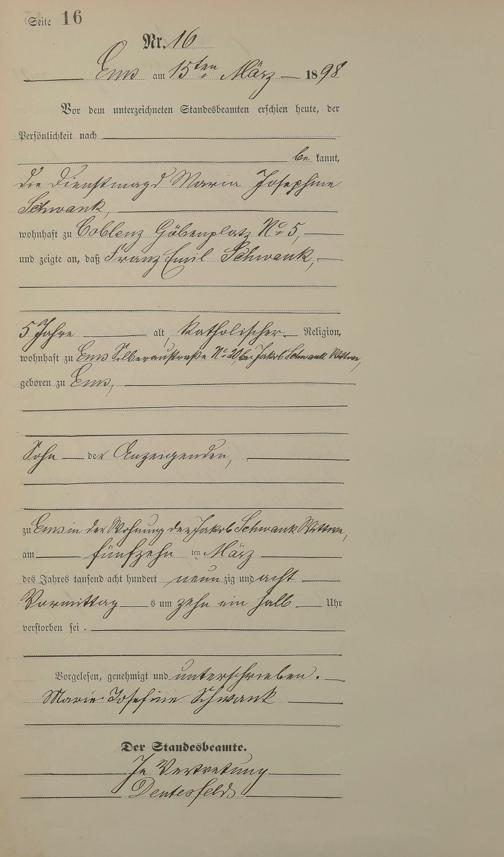 Seite 16
Nr. 16
Ems am 15ten März 1898
Vor dem unterzeichneten Standesbeamten erschien heute, der
Persönlichkeit nach
be kannt,
die Dienstmagd Maria Josephine
Schwank,
wohnhaft zu Coblenz Göbenplatz No 5,
und zeigte an, daß Franz Emil Schwank,
5 Jahre alt, katholischer Religion,
wohnhaft zu Ems Silberaustraße No 20, bei Jakob Schwank Wittwe,
geboren zu Ems,
Sohn der Anzeigenden,
zu Ems in der Wohnung der Jakob Schwank Wittwe,
am fünfzehn ten März
des Jahres tausend acht hundert neun zig und acht
Vormittag s um zehn ein halb Uhr
verstorben sei.
Vorgelesen, genehmigt und unterschrieben.
Marie Josefine Schwank
Der Standesbeamte.
In Vertretung